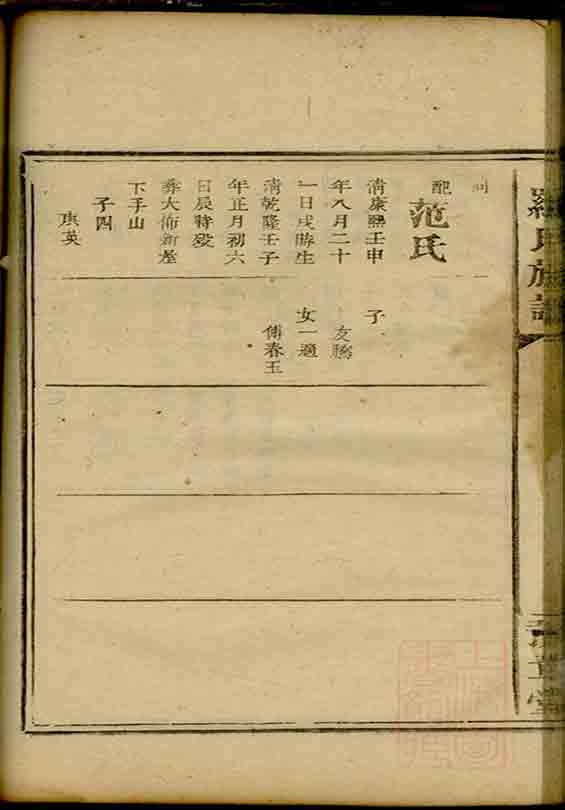 羅氏族譜
向
配范氏
清康熙壬申
年八月二十
一日戌時生
清乾隆壬子
年正月初六
日辰時歿
葬大佈新屋
下手山
子四
庚英
子
友勝
女一適
傅春玉
堂